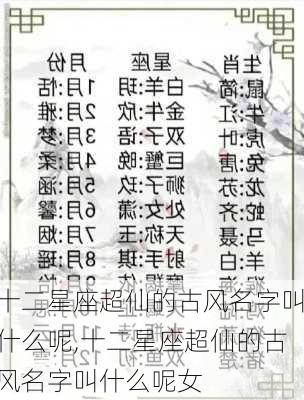 生肖 星座 月份
鼠:简 白羊:玥 1月:恬
牛:江 金牛:欣 2月:雅
虎:叶 双子:语 3月:梦
兔:唐 巨蟹:晚 4月:柔
龙:苏 狮子:玖 5月:涵
蛇:齐 处女:潇 6月:馨
马:聂 天称:玉 7月:烟
羊:白 射手:琪 8月:
十二星座超仙的古风名字叫
什么呢,十二星座超仙的古
风名字叫什么呢女